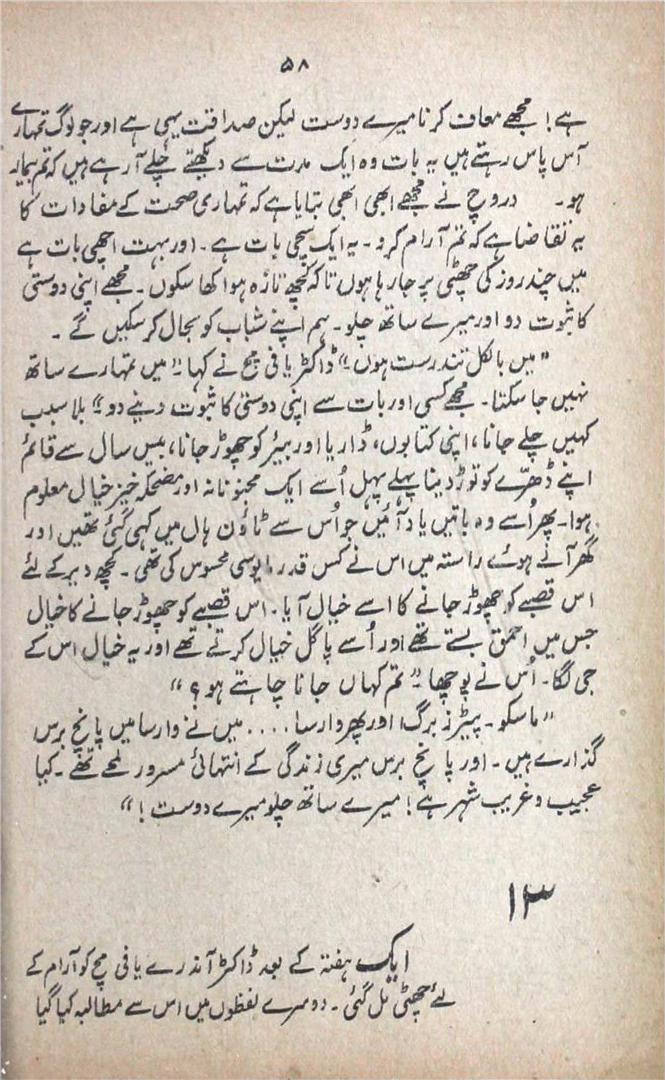 ۵۸
ہے! مجھے معاف کرنا میرے دوست لیکن صداقت یہی ہے اور جو لوگ تمہارے
آس پاس رہتے ہیں یہ بات وہ ایک مدت سے دیکھتے چلے آ رہے ہیں کہ تم بیمار
ہو۔ دروچ نے مجھے ابھی ابھی بتایا ہے کہ تمہاری صحت کے مفادات کا
یہ تقاضا ہے کہ تم آرام کرو۔ یہ ایک سچی بات ہے۔ اور بہت اچھی بات ہے
میں چند روز کی چھٹی پر جا رہا ہوں تاکہ کچھ تازہ ہوا کھا سکوں۔ مجھے اپنی دوستی
کا ثبوت دو اور میرے ساتھ چلو۔ ہم اپنے شباب کو بحال کر سکیں گے۔
”میں بالکل تندرست ہوں“ ڈاکٹر یافی مچ نے کہا۔ ”میں تمہارے ساتھ
نہیں جا سکتا۔ مجھے کسی اور بات سے اپنی دوستی کا ثبوت دینے دو“ بلا سبب
کہیں چلے جانا، اپنی کتابوں، ڈاریا اور بیئر کو چھوڑ جانا، بیس سال سے قائم
اپنے ڈھرّے کو توڑ دینا پہلے پہل اُسے ایک مجنونانہ اور مضحکہ خیز خیال معلوم
ہوا۔ پھر اُسے وہ باتیں یاد آئیں جو اُس سے ٹاؤن ہال میں کہی گئی تھیں اور
گھر آتے ہوئے راستہ میں اس نے کس قدر مایوسی محسوس کی تھی۔ کچھ دیر کے لئے
اس قصبے کو چھوڑ جانے کا اسے خیال آیا۔ اس قصبے کو چھوڑ جانے کا خیال
جس میں احمق بستے تھے اور اُسے پاگل خیال کرتے تھے اور یہ خیال اس کے
جی لگا۔ اُس نے پوچھا۔ ”تم کہاں جانا چاہتے ہو؟“
”ماسکو۔ پیٹرز برگ، اور پھر وارسا.... میں نے وارسا میں پانچ برس
گذارے ہیں۔ اور پانچ برس میری زندگی کے انتہائی مسرور لمحے تھے۔ کیا
عجیب و غریب شہر ہے! میرے ساتھ چلو میرے دوست!“
۱۳
ایک ہفتہ کے بعد ڈاکٹر آندرے یافی مچ کو آرام کے
لئے چھٹی مل گئی۔ دوسرے لفظوں میں اس سے مطالبہ کیا گیا